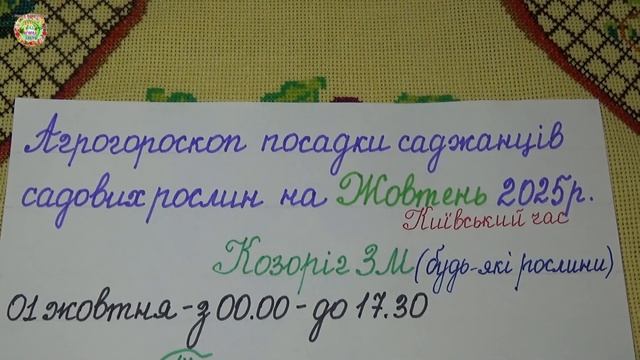 Агрогороскоп посадки саджанців
садових рослин на Жовтень 2025р.
Київський час
Козоріг ЗМ (будь-які рослини)
01 жовтня - з 00.00 - до 17.30